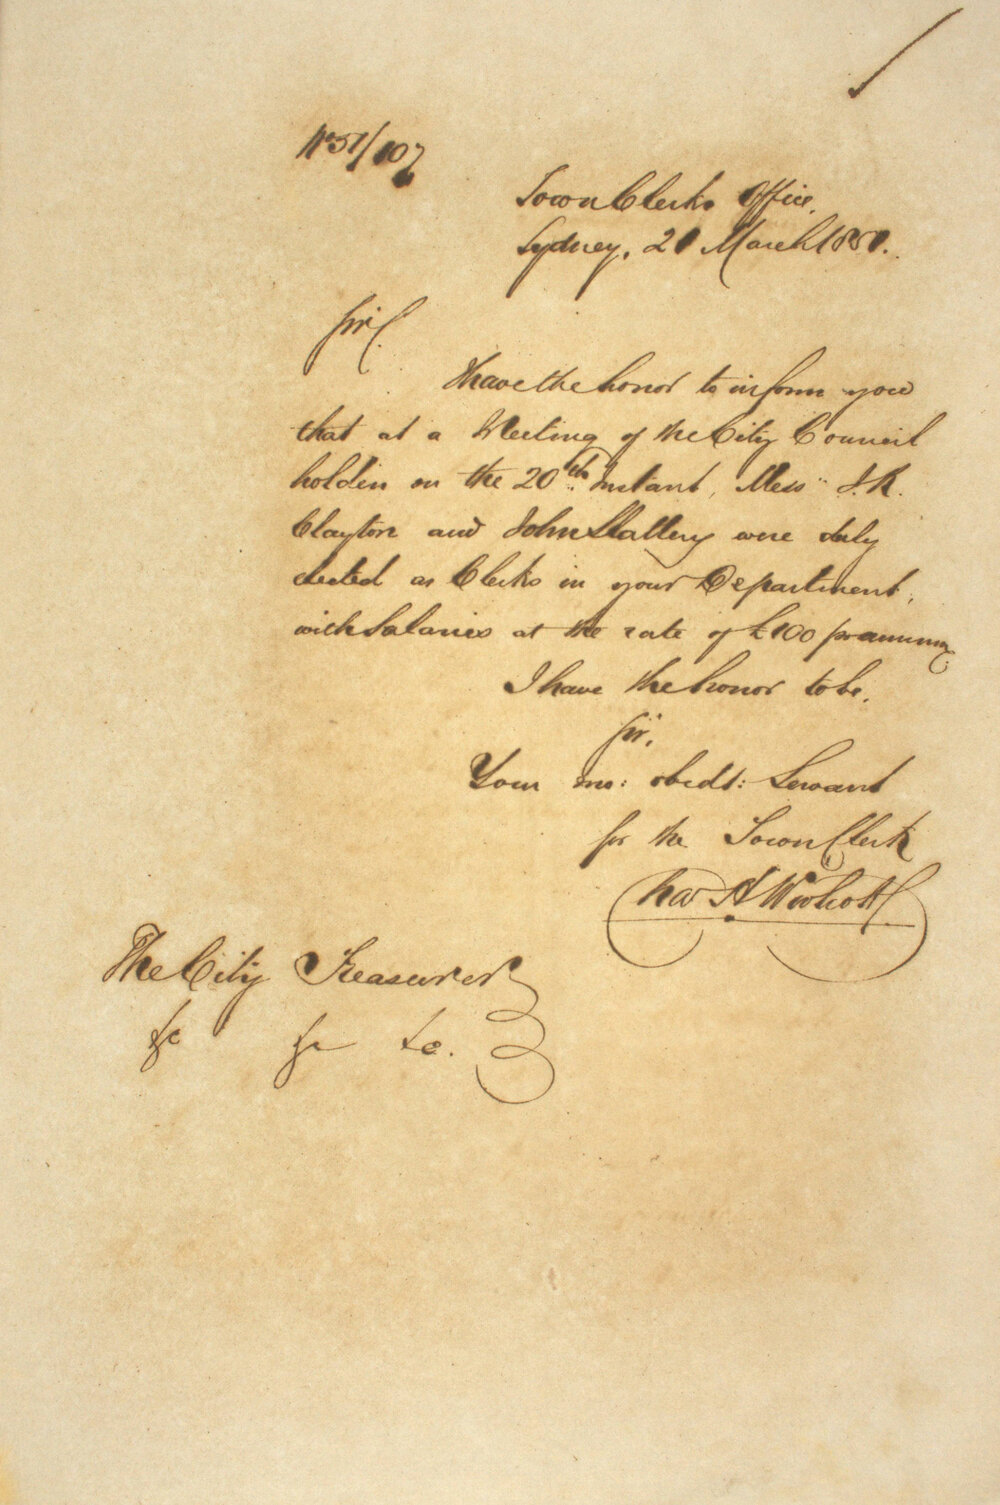 No 51/107
Town Clerks Office,
Sydney, 21 March 1851.
Sir,
I have the honor to inform you
that at a Meeting of the City Council
holden on the 20th Instant, Mess" J. R.
Clayton and John Slattery were duly
elected as Clerks in your Department,
with Salaries at the rate of £100 pr annum
I have the honor to be,
Sir,
Your mo: obedt: Servant
for the Town Clerk
Chas H Woolcott
The City Treasurer
&c &c &c.